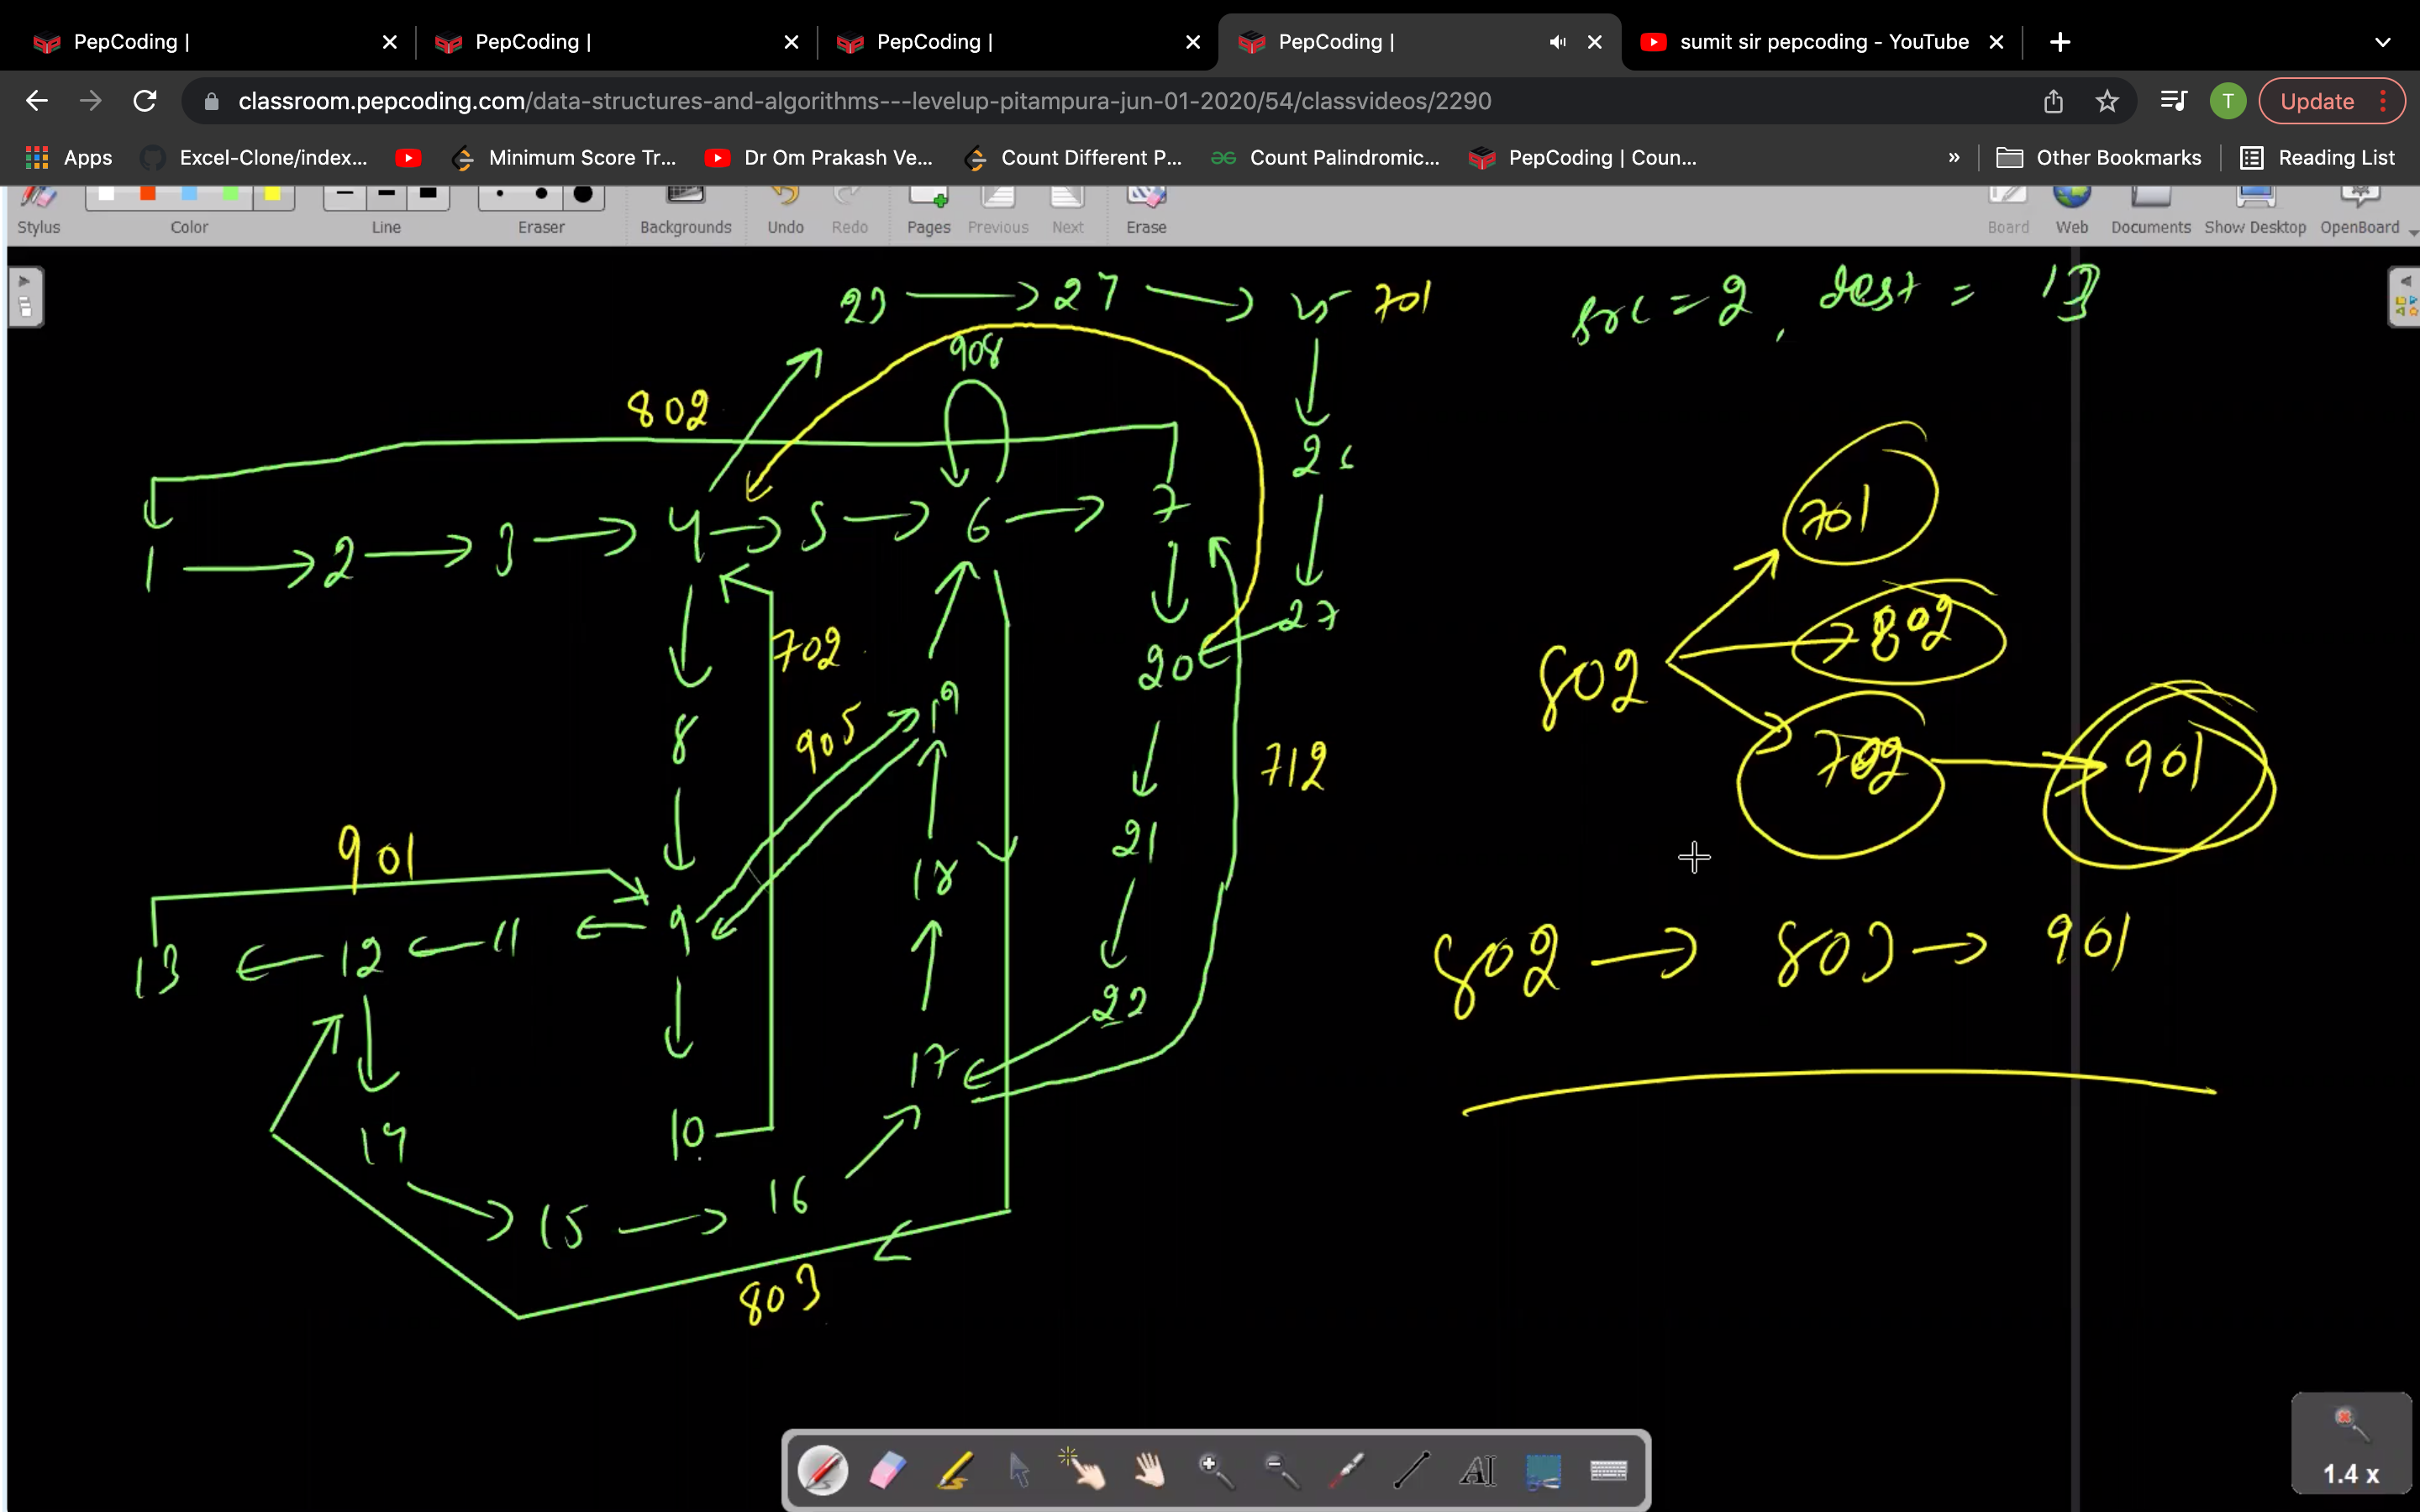 PepCoding |
PepCoding |
PepCoding |
PepCoding |
sumit sir pepcoding - YouTube
classroom.pepcoding.com/data-structures-and-algorithms---levelup-pitampura-jun-01-2020/54/classvideos/2290
T
Update
Apps
Excel-Clone/index...
Minimum Score Tr...
Dr Om Prakash Ve...
Count Different P...
Count Palindromic...
PepCoding | Coun...
»
Other Bookmarks
Reading List
Stylus
Color
Line
Eraser
Backgrounds
Undo
Redo
Pages
Previous
Next
Erase
Board
Web
Documents
Show Desktop
OpenBoard
23 → 27 → 701
src = 2, dest = 13
908
802
26
701
1 → 2 → 3 → 4 → 5 → 6 → 7
27
802
702
20
802
19
8
905
712
702 → 901
21
901
18
9
11
12
13
802 → 803 → 901
22
17
10
14
16
15
803
1.4 x